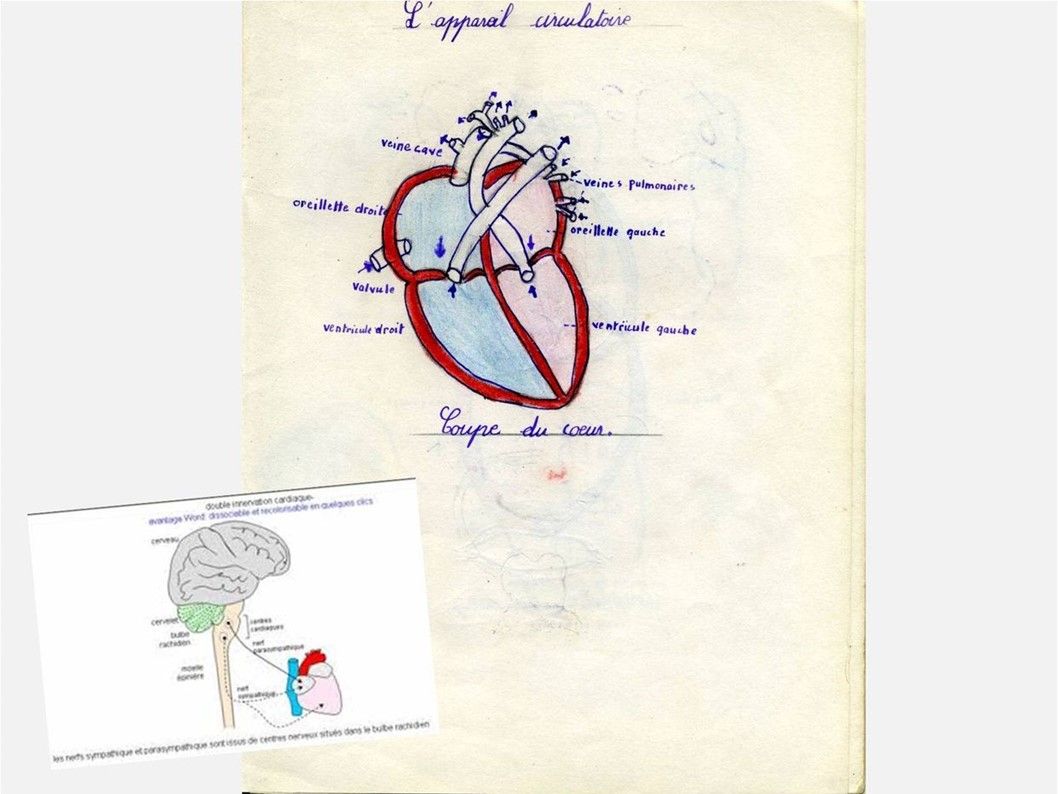 L'appareil circulatoire
veine cave
veines pulmonaires
oreillette droite
oreillette gauche
valvule
ventricule droit
ventricule gauche
Coupe du coeur.
double innervation cardiaque-
avantage Word: dissociable et recolorisable en quelques clics
cerveau
cervelet
centres
cardiaques
bulbe
rachidien
nerf
parasympathique
moelle
épinière
nerf
sympathique
les nerfs sympathique et parasympathique sont issus de centres nerveux situés dans le bulbe rachidien